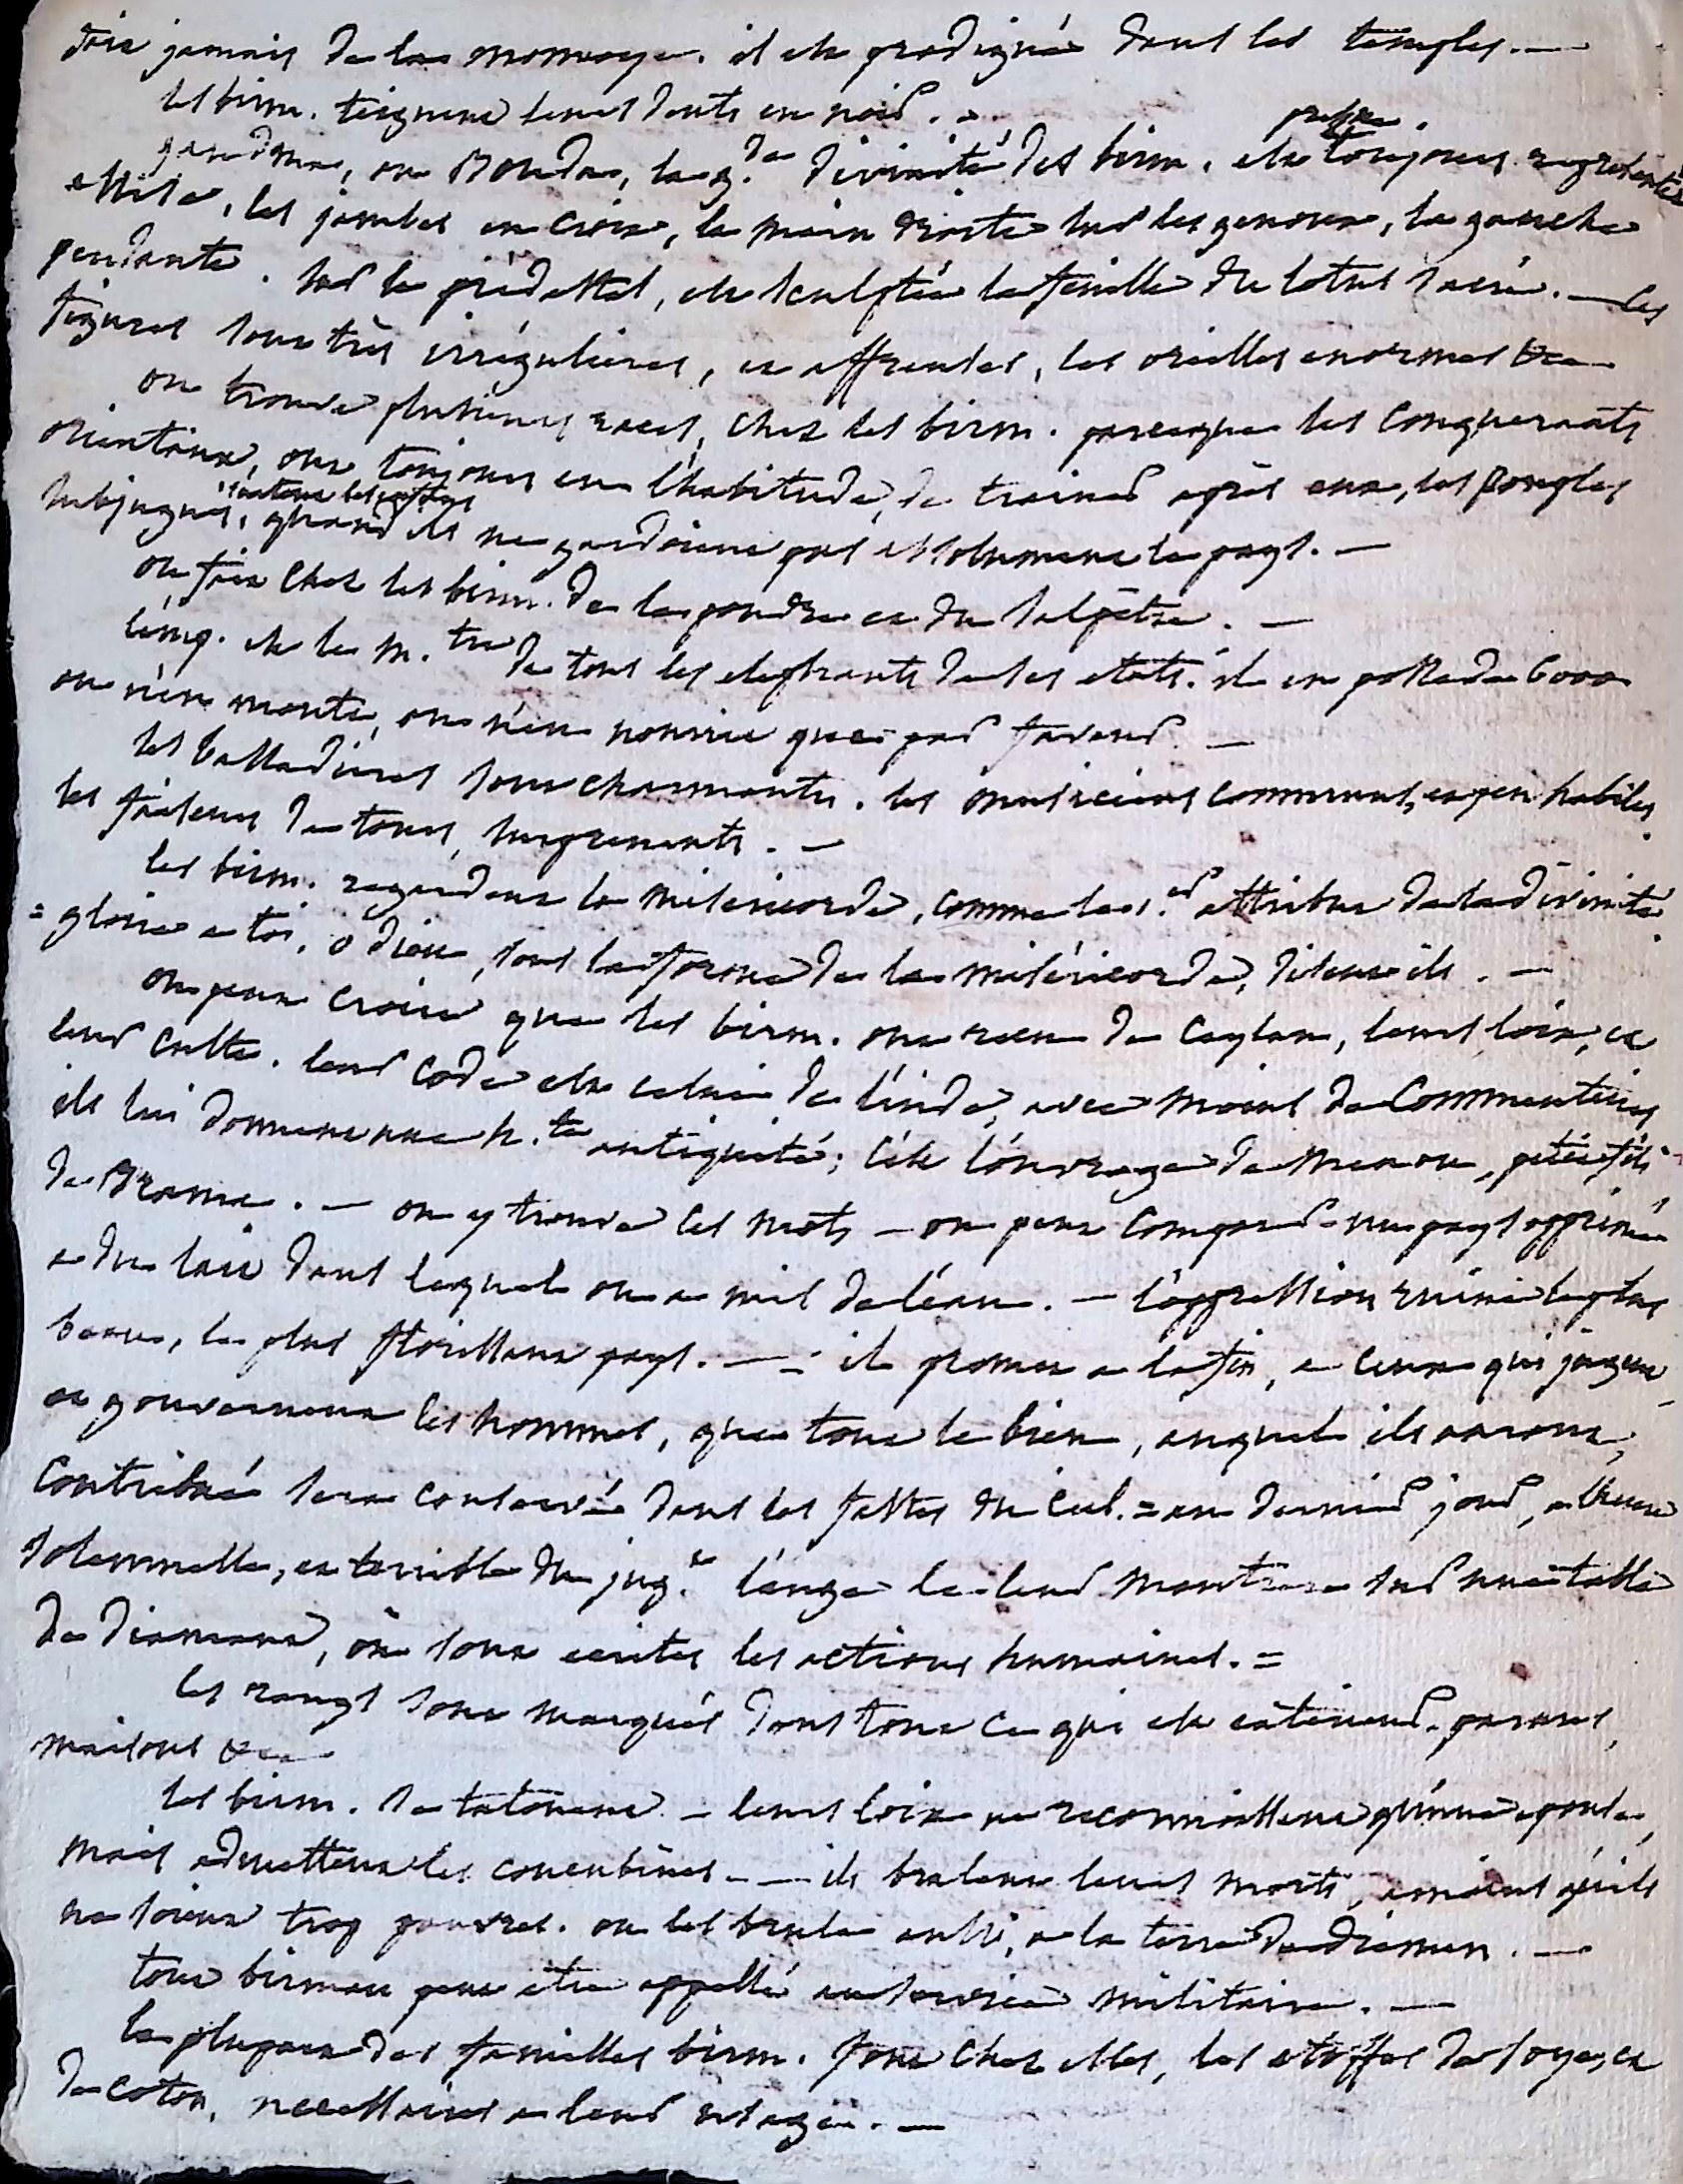 fait jamais de la monnoye. il est prodigué dans les temples. —
les birm. teignent leurs dents en noir. —
gaudma, ou Boudа, la g.de divinité des birm. est presque toujours representée
assise, les jambes en croix, la main droite sur les genoux, la gauche
pendante. sur le piédestal, est sculptée la feuille du lotus sacré. — les
figures sont très irrégulières, et affreuses, les oreilles enormes &ca
on trouve plusieurs races, chez les birm. parceque les conquerants
orientaux, ont toujours eu l'habitude, de trainer après eux, les peuples
subjugués, surtout les artisans quand ils ne gardoient pas absolument le pays. —
on fait chez les birm. de la poudre et du salpêtre. —
l'emp. est le m.tre de tous les elephants de ses etats. il en possede 6000
on n'en monte, on n'en nourrit que par faveur. —
les balladines sont charmantes. les musiciens communs, et peu habiles.
les faiseurs de tours, surprenants. —
les birm. regardent la misericorde, comme le 1.er attribut de la divinité.
= gloire a toi, ô dieu, sous la forme de la miséricorde, disent ils. —
on peut croire que les birm. ont recu de Ceylan, leurs loix, et
leur culte. leur code est celui de l'inde, avec moins de Commentaires
ils lui donnent une h.te antiquité; c'est l'ouvrage de Menou, petit fils
de Brama. — on y trouve ces mots — on peut comparer un pays opprimé
a du lait dans lequel on a mis de l'eau. — l'oppression ruine le plus
beau, le plus florissant pays. — il promet a la fin, a ceux qui jugent
et gouvernent les hommes, que tout le bien, auquel ils auront
contribué sera conservé dans les fastes du ciel. = au dernier jour, a l'heure
solemnelle, et terrible du jug.t l'ange le leur montrera sur une table
de diamant, où sont ecrites les actions humaines. =
les rangs sont marqués dans tout ce qui est extérieur, parures,
maisons &ca
les birm. se tatouent. — leurs loix ne reconnoissent qu'une epouse,
mais admettent les concubines. — ils brulent leurs morts, a moins qu'ils
ne soient trop pauvres. on les brule aussi, a la terre
tout birman peut être appellé au service militaire. —
la plupart des familles birm. font chez elles, les etoffes de soye, et
de coton, necessaires a leur usage. —